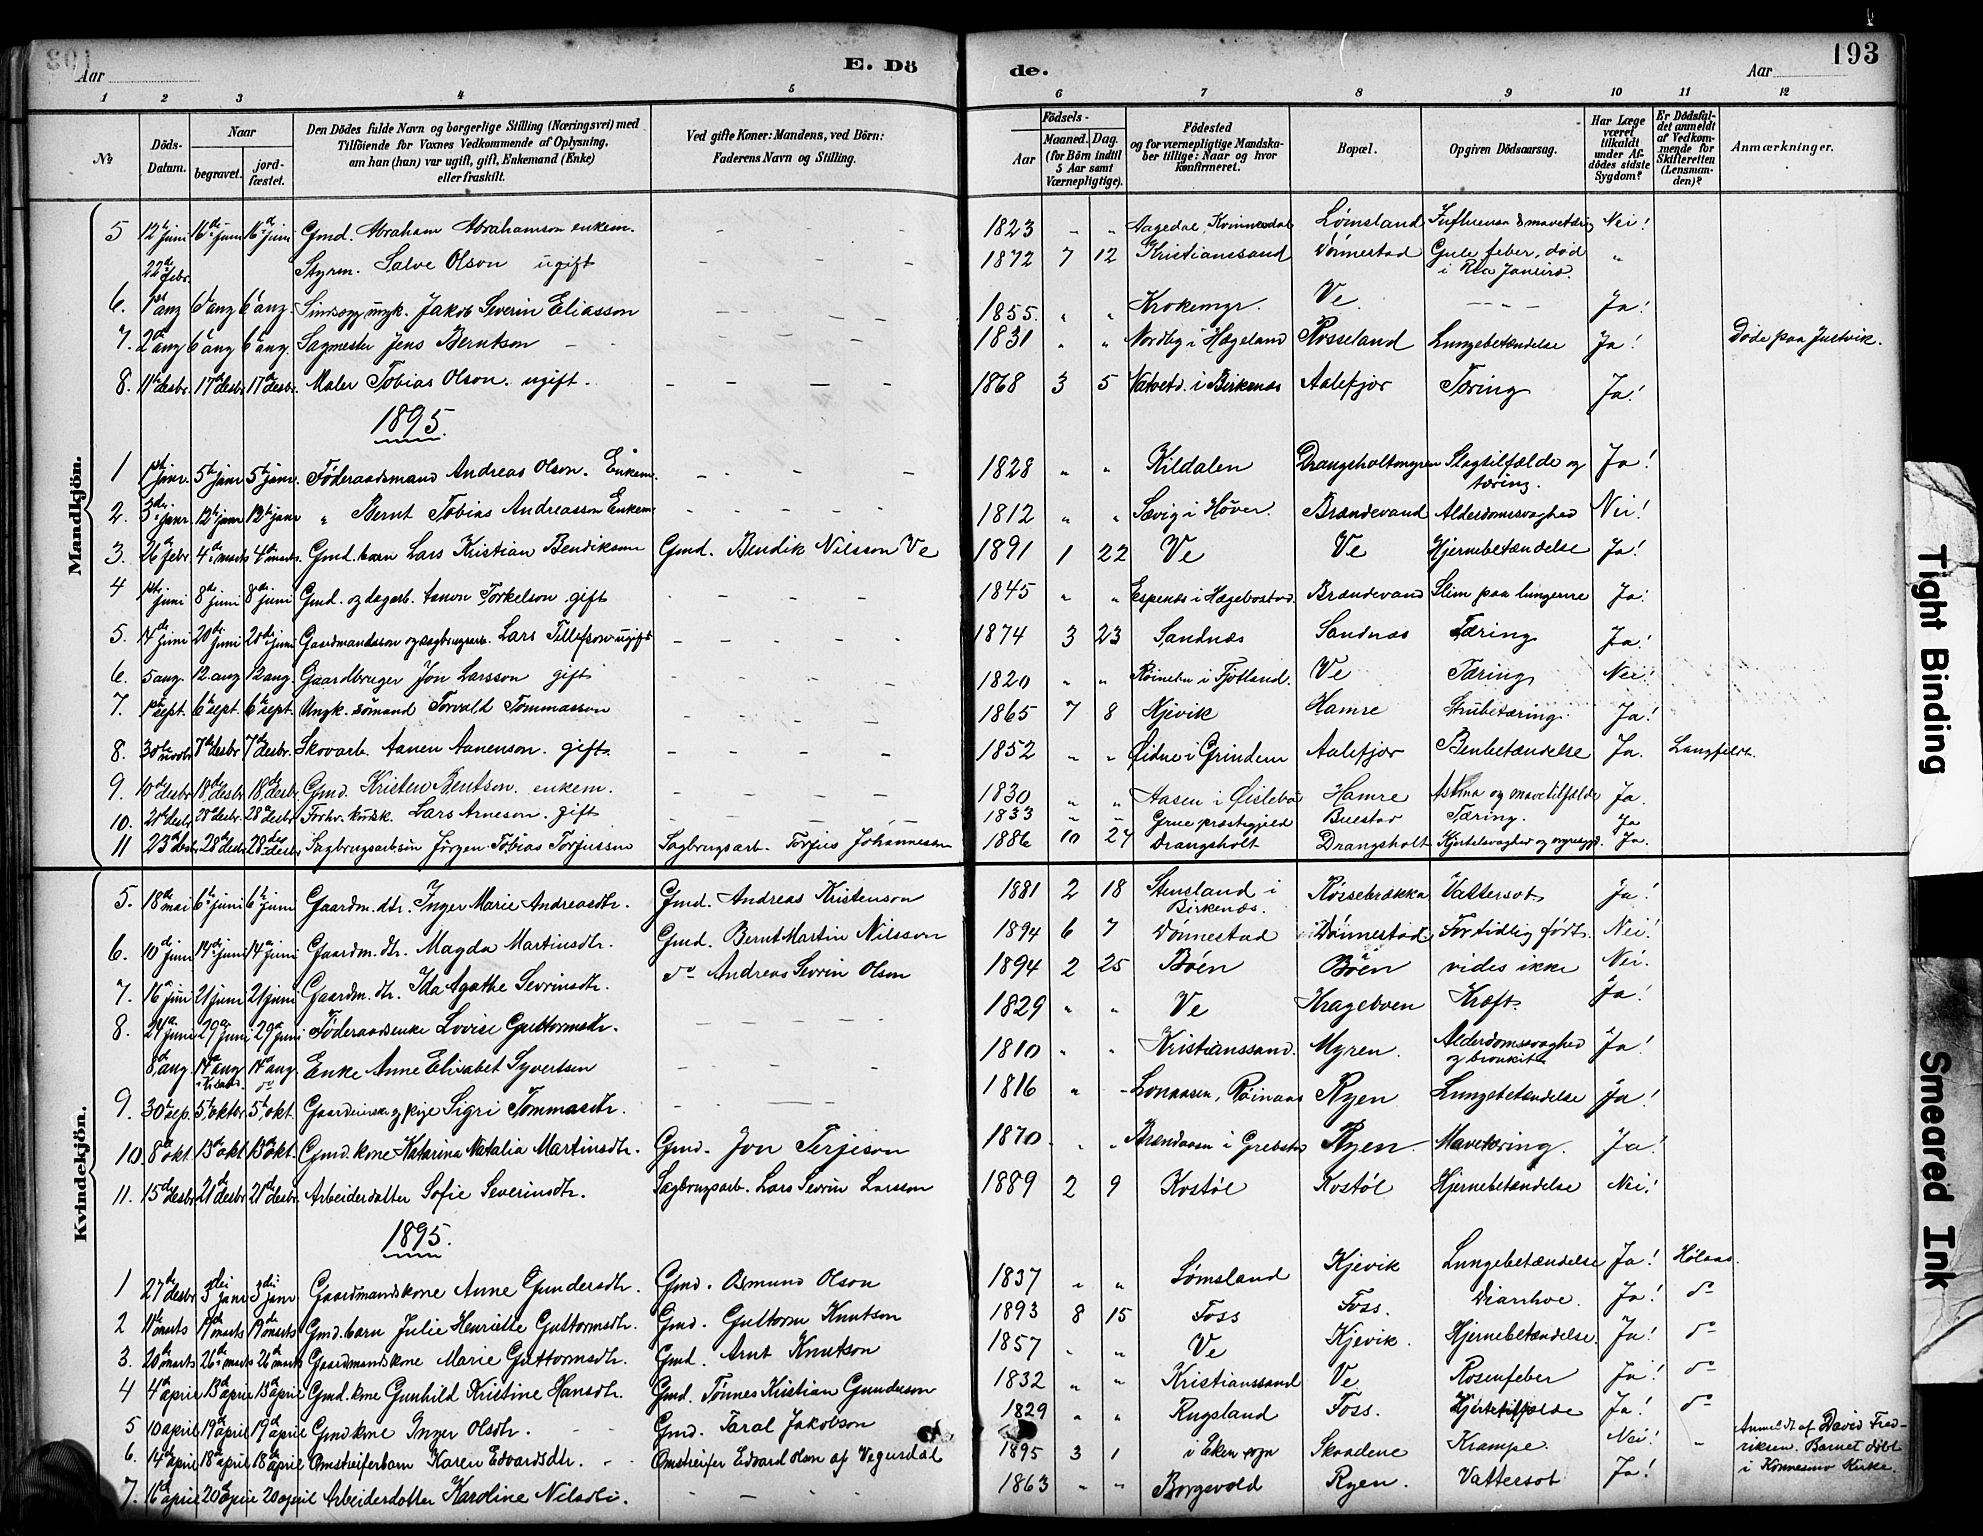 Aar
E. Dö
de.
Aar
193
1 2 3 4 5 6 7 8 9 10 11 12
№
Döds-Datum.
Naar
begravet.
jord-fæstet.
Den Dödes fulde Navn og borgerlige Stilling (Næringsvei) med
Tilföiende for Voxnes Vedkommende af Oplysning,
om han (hun) var ugift, gift, Enkemand (Enke)
eller fraskilt.
Ved gifte Koner: Mandens, ved Börn:
Faderens Navn og Stilling.
Födsels-
Aar
Maaned. Dag.
(for Börn indtil
5 Aar samt
Værnepligtige).
Födested
og for værnepligtige Mandska-
ber tillige: Naar og hvor
konfirmeret.
Bopæl.
Opgiven Dödsaarsag.
Har Læge
været
tilkaldt
under Af-
dødes sidste
Sygdom?
Er Dödsfal-
det anmeldt
af Vedkom-
mende for
Skifteretten
(Lensman-
den)?
Anmærkninger.
Mandkjön.
5 12te juni 16de juni 16de juni Gmd. Abraham Abrahamson enkem. 1823 Aagedal, Kvinnesdal Lømsland Influensa & mavetæring Nei!
22de febr. Styrm. Salve Olson ugift 1872 7 12 Kristianssand Dønnestad Gule feber, død i Rio Janeiro. "
6. 1st aug 6te aug 6te aug. Jakob Severin Eliasson 1855. " " Krokemyr. Ve Ja!
7. 2den aug 6te aug 6te aug. Sagmester Jens Berntson 1831 " " Nordby i Hægeland Rosseland Lungebetændelse Ja! Døde paa Justvik.
8. 11te desbr. 17de desbr. 17de desbr. Maler Tobias Olson. ugift. 1868 3 5 i Birkenæs Aalefjær Tæring Ja!
1895.
1 1ste janr. 5te janr 5te janr. Föderaadsmand Andreas Olson. Enkem. 1828 " " Kildalen Drangsholtmyren Slagtilfælde og tæring. Ja!
2. 3die janr. 12te janr 12te janr " Bernt Tobias Andreasson Enkem 1812 " " Sævig i Høver. Brændevand Alderdomssvaghed Nei!
3. 26de febr 4de marts 4de marts. Gmd. barn Lars Kristian Bendikson Gmd. Bendik Nilsson Ve 1891 1 22 Ve Ve Hjernebetændelse Ja!
4 1ste juni 8de juni 8de juni Gmd. og dagarb. Aanon Torkelson gift 1845 " " Espenæs i Hægebostad. Brændevand Slim paa lungerne Ja!
5. 14de juni 20de juni 20de juni Gaardmandssøn og sagbrugsarb. Lars Tellefson ugift 1874 3 23 Sandnæs Sandnæs Tæring Ja!
6. 5 aug. 12. aug 12 aug. Gaardbruger Jon Larsson gift 1820 " " i Fjotland. Ve Tæring Nei!
7. 1ste sept. 6te sept. 6te sept. Ungk. sømand Torvald Tommasson 1865 7 8 Kjevik Hamre Strubetæring. Ja!
8. 30te novbr 7de desbr. 7de desbr. Skovarb. Aanen Aanenson. gift 1852 " " Øidne i Grindem Aalefjær Benbetændelse Ja. Langfeldt.
9. 10de desbr. 18de desbr. 18de desbr. Gmd. Kristen Berntson. enkem. 1830 " " Aasen i Øislebø Hamre Astma og mavetilfælde Ja.
10. 21de desbr 28de desbr. 28de desbr Forhv. kudsk. Lars Arneson. gift 1833 " " Grue præstegjeld Buestad Tæring. Ja
11 23de desbr 28de desbr 28de desbr Sagbrugsarb. søn Jørgen Tobias Torjusson Sagbrugsarb. Torjus Johannessen 1886 10 24 Drangsholt Drangsholt Kjertelsvaghed og Ja.
Kvindekjön.
5. 18de mai 6te juni 6te juni Gaardm. dtr. Inger Marie Andreasdtr. Gmd. Andreas Kristenson 1881 2 18 Stensland i Birkenæs. Røssebrække Vattersot Ja!
6. 10de juni 14de juni 14de juni Gaardm. dtr. Magda Martinsdtr. Gmd. Bernt Martin Nilsson 1894 6 7 Dønnestad Dønnestad For tidlig født. Nei!
7. 16de juni 21 juni 21 juni Gaardm. dtr. Ida Agathe Sevrinsdtr. do Andreas Sevrin Olson 1894 2 25 Bøen Bøen vides ikke Nei.
8. 24de juni 29de juni 29de juni Föderaadsenke Lovise Guttormsdtr. 1829 " " Ve Krageboen Kræft. Ja!
8de aug. 14de aug 14de aug. Enke Anne Elisabet Syvertsen 1810 " " Kristianssand. Myren. Alderdomssvaghed og bronkit Ja!
9. 30te sep. 5te oktbr 5te okt. Sigri Tommasdtr. 1816 " - Ryen Lungebetændelse Ja!
10. 8de okt. 13de okt 13de okt. Gmd. kone Katarina Natalia Martinsdtr. Gmd. Jon Terjeson 1870 " " i Grebstad Ryen. Mavetæring. Ja!
11. 15de desbr 21de desbr 21de desbr. Arbeiderdatter Sofie Severinsdtr. Sagbrugsarb. Lars Sevrin Larsson 1889 2 9 Kostøl Kostøl Hjernebetændelse Nei!
1895.
1 27de desbr 3die janr 3die janr Gaardmandskone Anne Gundersdtr. Gmd. Osmund Olson 1837 " " Lømsland Kjevik Lungebetændelse Ja! Hølaas.
2 11te marts 19de marts 19de marts Gmd. barn Julie Henriette Guttormsdtr. Gmd. Guttorm Knutson 1893 8 15 Foss Foss. Diarrhoe. Ja! do
3. 20de marts 26de marts 26de marts Gaardmandskone Marie Guttormsdtr. Gmd. Arnt Knutson 1857 " " Ve Kjevik. Hjernebetændelse. Ja! do
4 4de april 13de april 13de april Gmd. kone Gunhild Kristine Hansdtr. Gmd. Tønnes Kristian Gunderson 1832 " " Kristianssand Ve Rosenfeber Ja! do
5 10 april 19de april 19de april Gmd kone Inger Olsdtr. Gmd. Taral Jakobson 1829 " " Rugsland Foss. Hjertetilfælde Ja! do
6. 14de april 18de april 18de april Omstreiferbarn Karen Edvardsdtr. Omstreifer Edvard Olsen af Vegusdal 1895 3 1 i Eken sogn Skaadene Krampe. Nei! " Anmeldt af David Fred-
riksen. Barnet døbt
i Konnesmo Kirke.
7. 16de april 20de april 20 april Arbeiderdatter Karoline Nilsdtr. 1863 " " Borgevold Ryen. Vattersot Ja!
Tight Binding
Smeared Ink